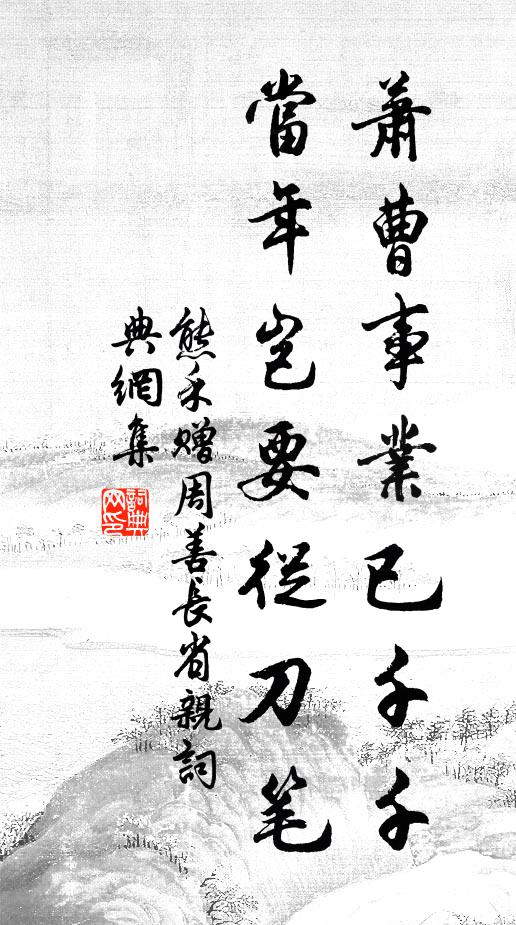 蕭曹事業已千千
當年豈要從刀笔
熊禾赠周善長省親詞
典網集
詞典
网印